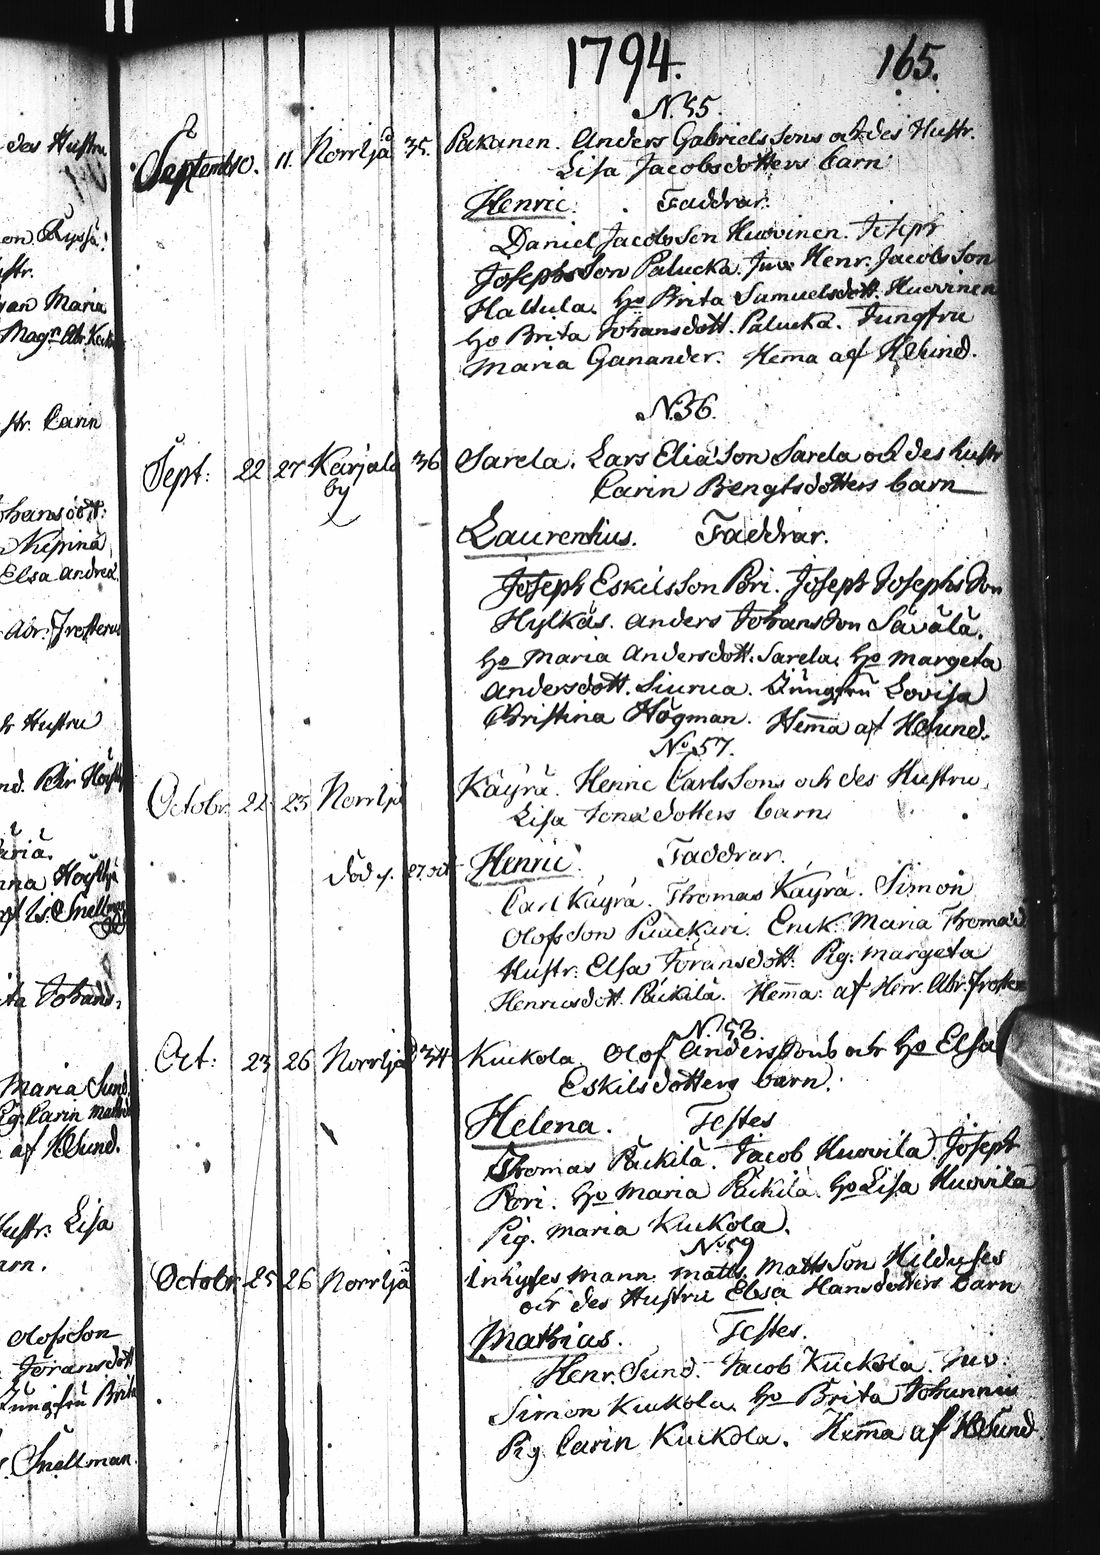 des Hustru
ustr.
Maria
str. Carin
Elsa Andreæ
Hustru
Maria Sund
af HSund.
Hustr: Lisa
Olofsson
Jungfru Brita
Snellman.
1794. 165.
N. 55
Septembr. 11. Norrljä 35. Pakanen. Anders Gabriels Sons och des Hustr.
Lisa Jacobsdotters barn
Henric. Faddrar.
Daniel Jacobsson Huovinen. Joseph
Josephsson Palucka. Juv: Henr. Jacobsson
Haltula. Ho Brita Samuelsdott. Huovinen
Ho Brita Johansdott. Palucka. Jungfru
Maria Ganander. Hema af HSund.
N. 56.
Sept: 22 27 Karjala 36 Sarela. Lars Eliæ Son Sarela och des hustr
by Carin Bengtsdotters barn
Laurentius. Faddrar.
Joseph Eskilsson Pori. Joseph Josephsson
Hylkäs. Anders Johansson Säväla.
Ho Maria Andersdott. Sarela. Ho Margeta
Andersdott. Siurua. Jungfru Lovisa
Christina Högman. Hema af HSund.
No 57.
Octobr. 22 23 Norrljä Käyrä. Henric Carls Sons och des Hustru
Lisa Jonædotters barn
död d. 27. oct Henric Faddrar.
Carl Käyrä. Thomas Käyrä. Simon
Olofsson Puuckari. Erick. Maria Thomæd
Hustr: Elsa Göransdott. Pig: Margeta
Henricsdott. Päckilä. Hema: af Herr. Abr. Froster
N. 58
Oct: 23 26 Norrljä 34 Kuckola. Olof Anderssons och Ho Elsa
Eskilsdotters barn.
Helena. Testes
Thomas Päckilä. Jacob Huovila. Joseph
Pori. Ho Maria Päckilä. Ho Lisa Huovila
Pig. Maria Kuckola.
No 59
Octobr 25 26 Norrljä Inhyses mann. Matts Matts Son Hilduses
och des Hustru Elsa Hansdotters barn
Mathias. Testes.
Henr. Sund. Jacob Kuckola. Juv:
Simon Kuckola. Ho Brita Johannis
Pig Carin Kuckola. Hema af HSund